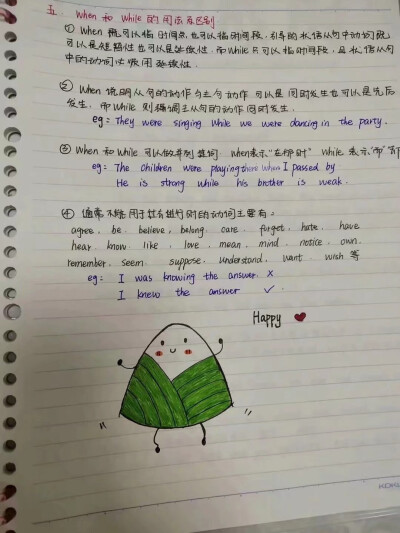 五、When 和 While 的用法及区别
① When 既可以指时间点,也可以指时间段,引导的状语从句中动词既
可以是短暂性也可以是延续性,而While只可以指时间段,且状语从句
中的动词必须用延续性.
② When 说明从句的动作与主句动作可以是同时发生也可以是先后
发生,而While则强调主从句的动作同时发生.
eg: They were singing while we were dancing in the party.
③ When 和 While 可以做并列连词. when表示“在那时” while 表示“而”
eg: The children were playing there when I passed by
He is strong while his brother is weak.
④ 通常不能用于过去进行时的动词主要有:
agree, be, believe, belong, care, forget, hate, have
hear, know, like, love, mean, mind, notice, own.
remember, seem, suppose, understand, want, wish 等
eg: I was knowing the answer. ×
I knew the answer ✓.
Happy